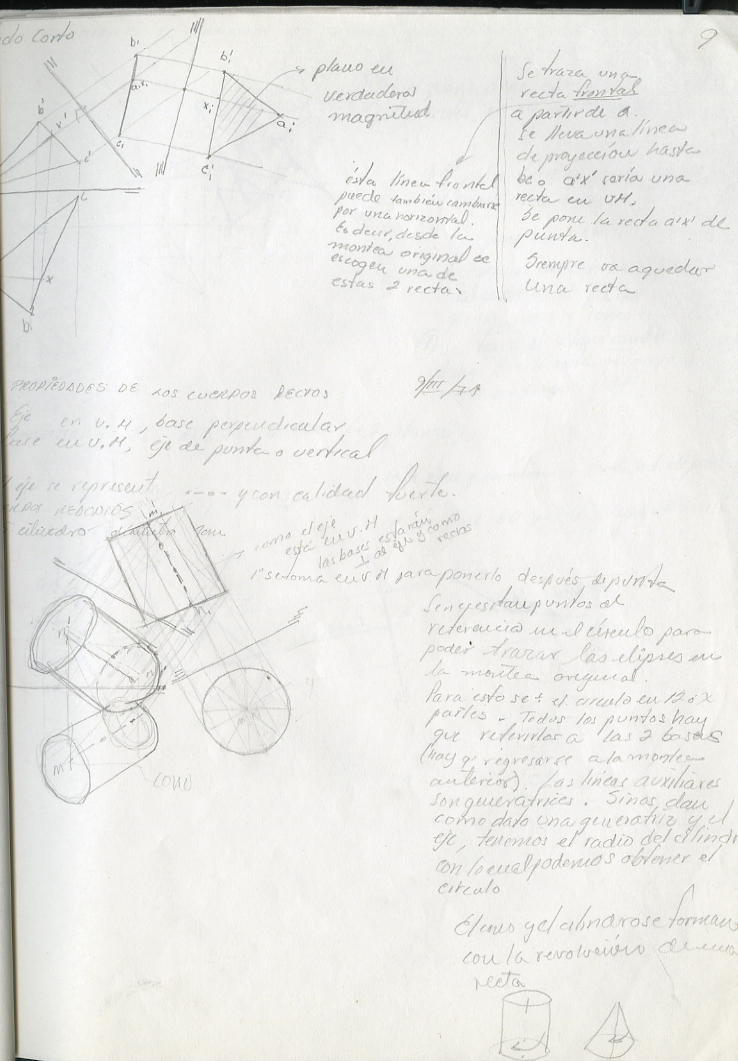 do Corto
9
plano en
verdadera
magnitud
Se traza una
recta frontal
a partir de a.
Se lleva una línea
de proyección hasta
bc o a'x' sería una
recta en VM.
Se pone la recta a'x' de
punta.
Siempre va a quedar
una recta
ésta línea frontal
puede también cambiarse
por una horizontal.
Es decir, desde la
montea original se
escogen una de
estas 2 rectas
PROPIEDADES DE LOS CUERPOS RECTOS
9/III/
Eje en V.M, base perpendicular
Base en V.M, eje de punta o vertical
el eje se represent y con calidad fuerte.
cilindro
como el eje
está en V.M
las bases estarán
⊥ al eje y como
rectas
1° se toma en V.M para ponerlo después de punta
Se necesitan puntos de
referencia en el círculo para
poder trazar las elipses en
la montea original.
Para esto se ÷ el círculo en 12 ó X
partes. Todos los puntos hay
que referirlos a las 2 bases
(hay q regresarse a la montea
anterior). Las líneas auxiliares
son generatrices. Si nos dan
como dato una generatriz y el
eje, tenemos el radio del cilindro
con lo cual podemos obtener el
círculo
CONO
El cono y el cilindro se forman
con la revolución de una
recta